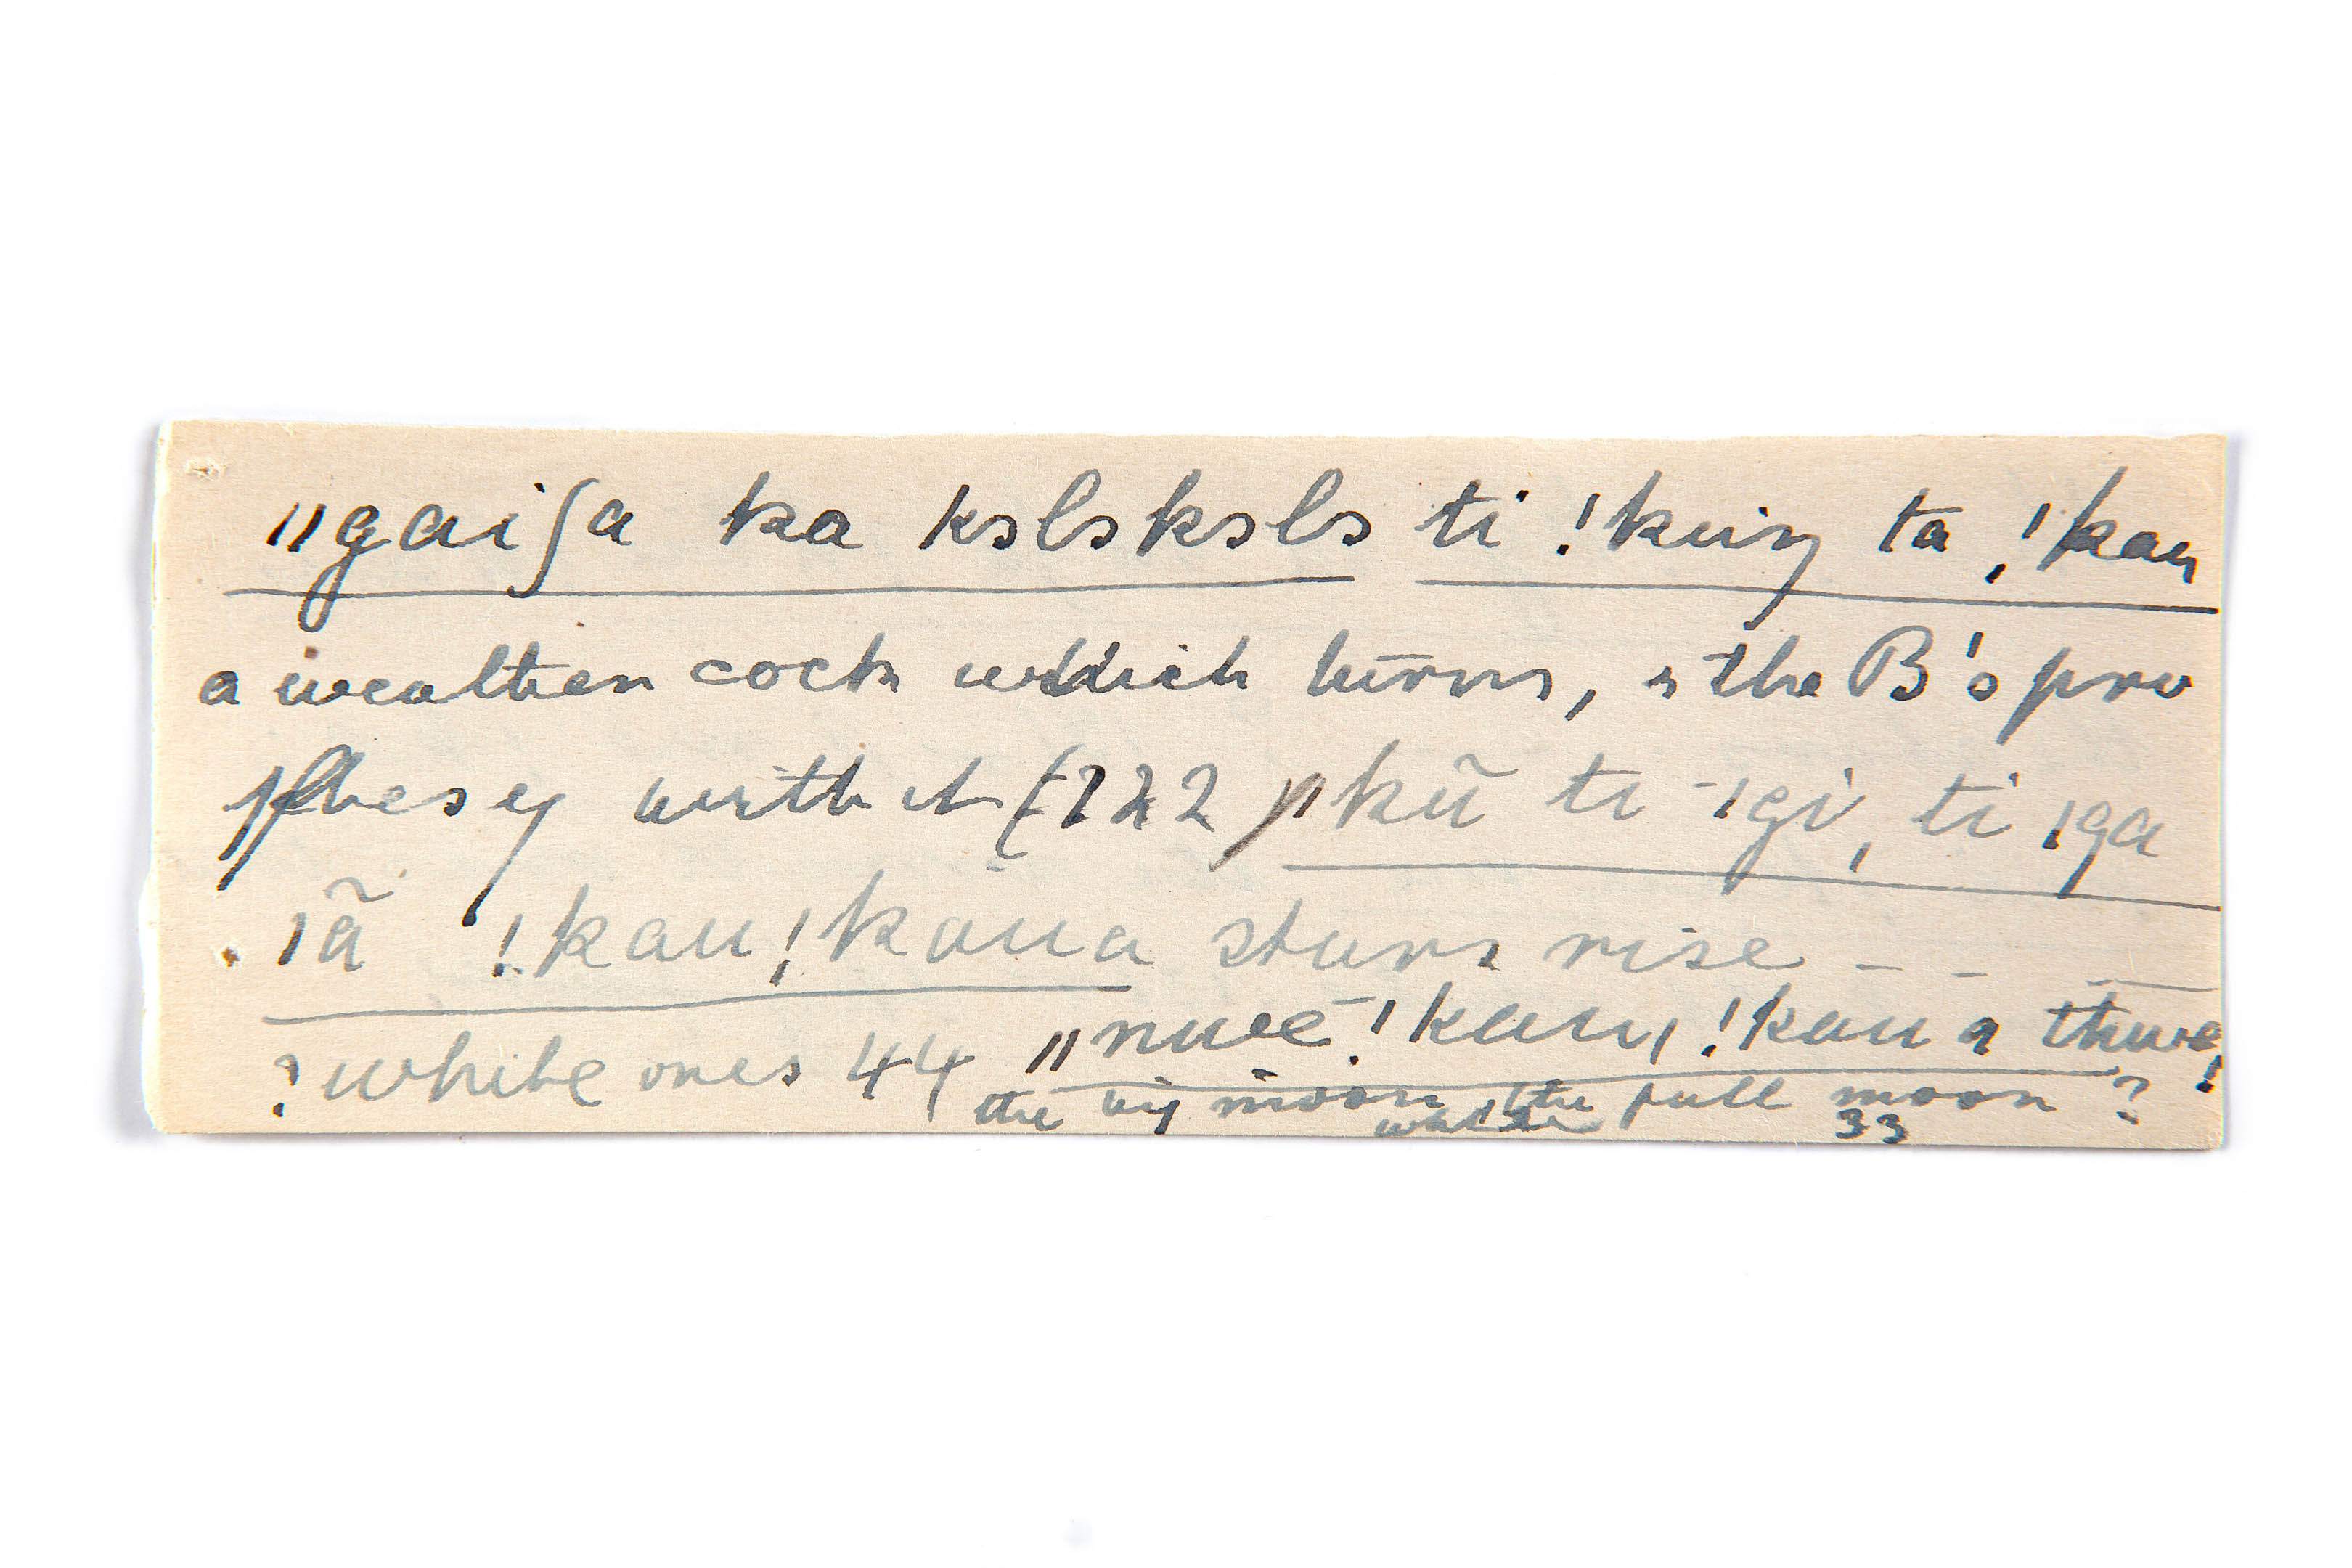 ǁgaiʃa ka kslsksls ti !kuiŋ ta !kau
a weather cock which turns, & the B's pro
phesy with it (122) ǁkũ ti ǀgi, ti ǀga
ǀã !kau!kaua stars rise – –
? white ones 44 ǁnuẽ !kau, !kau a thwe!
the big moon, the full moon ?
white 33